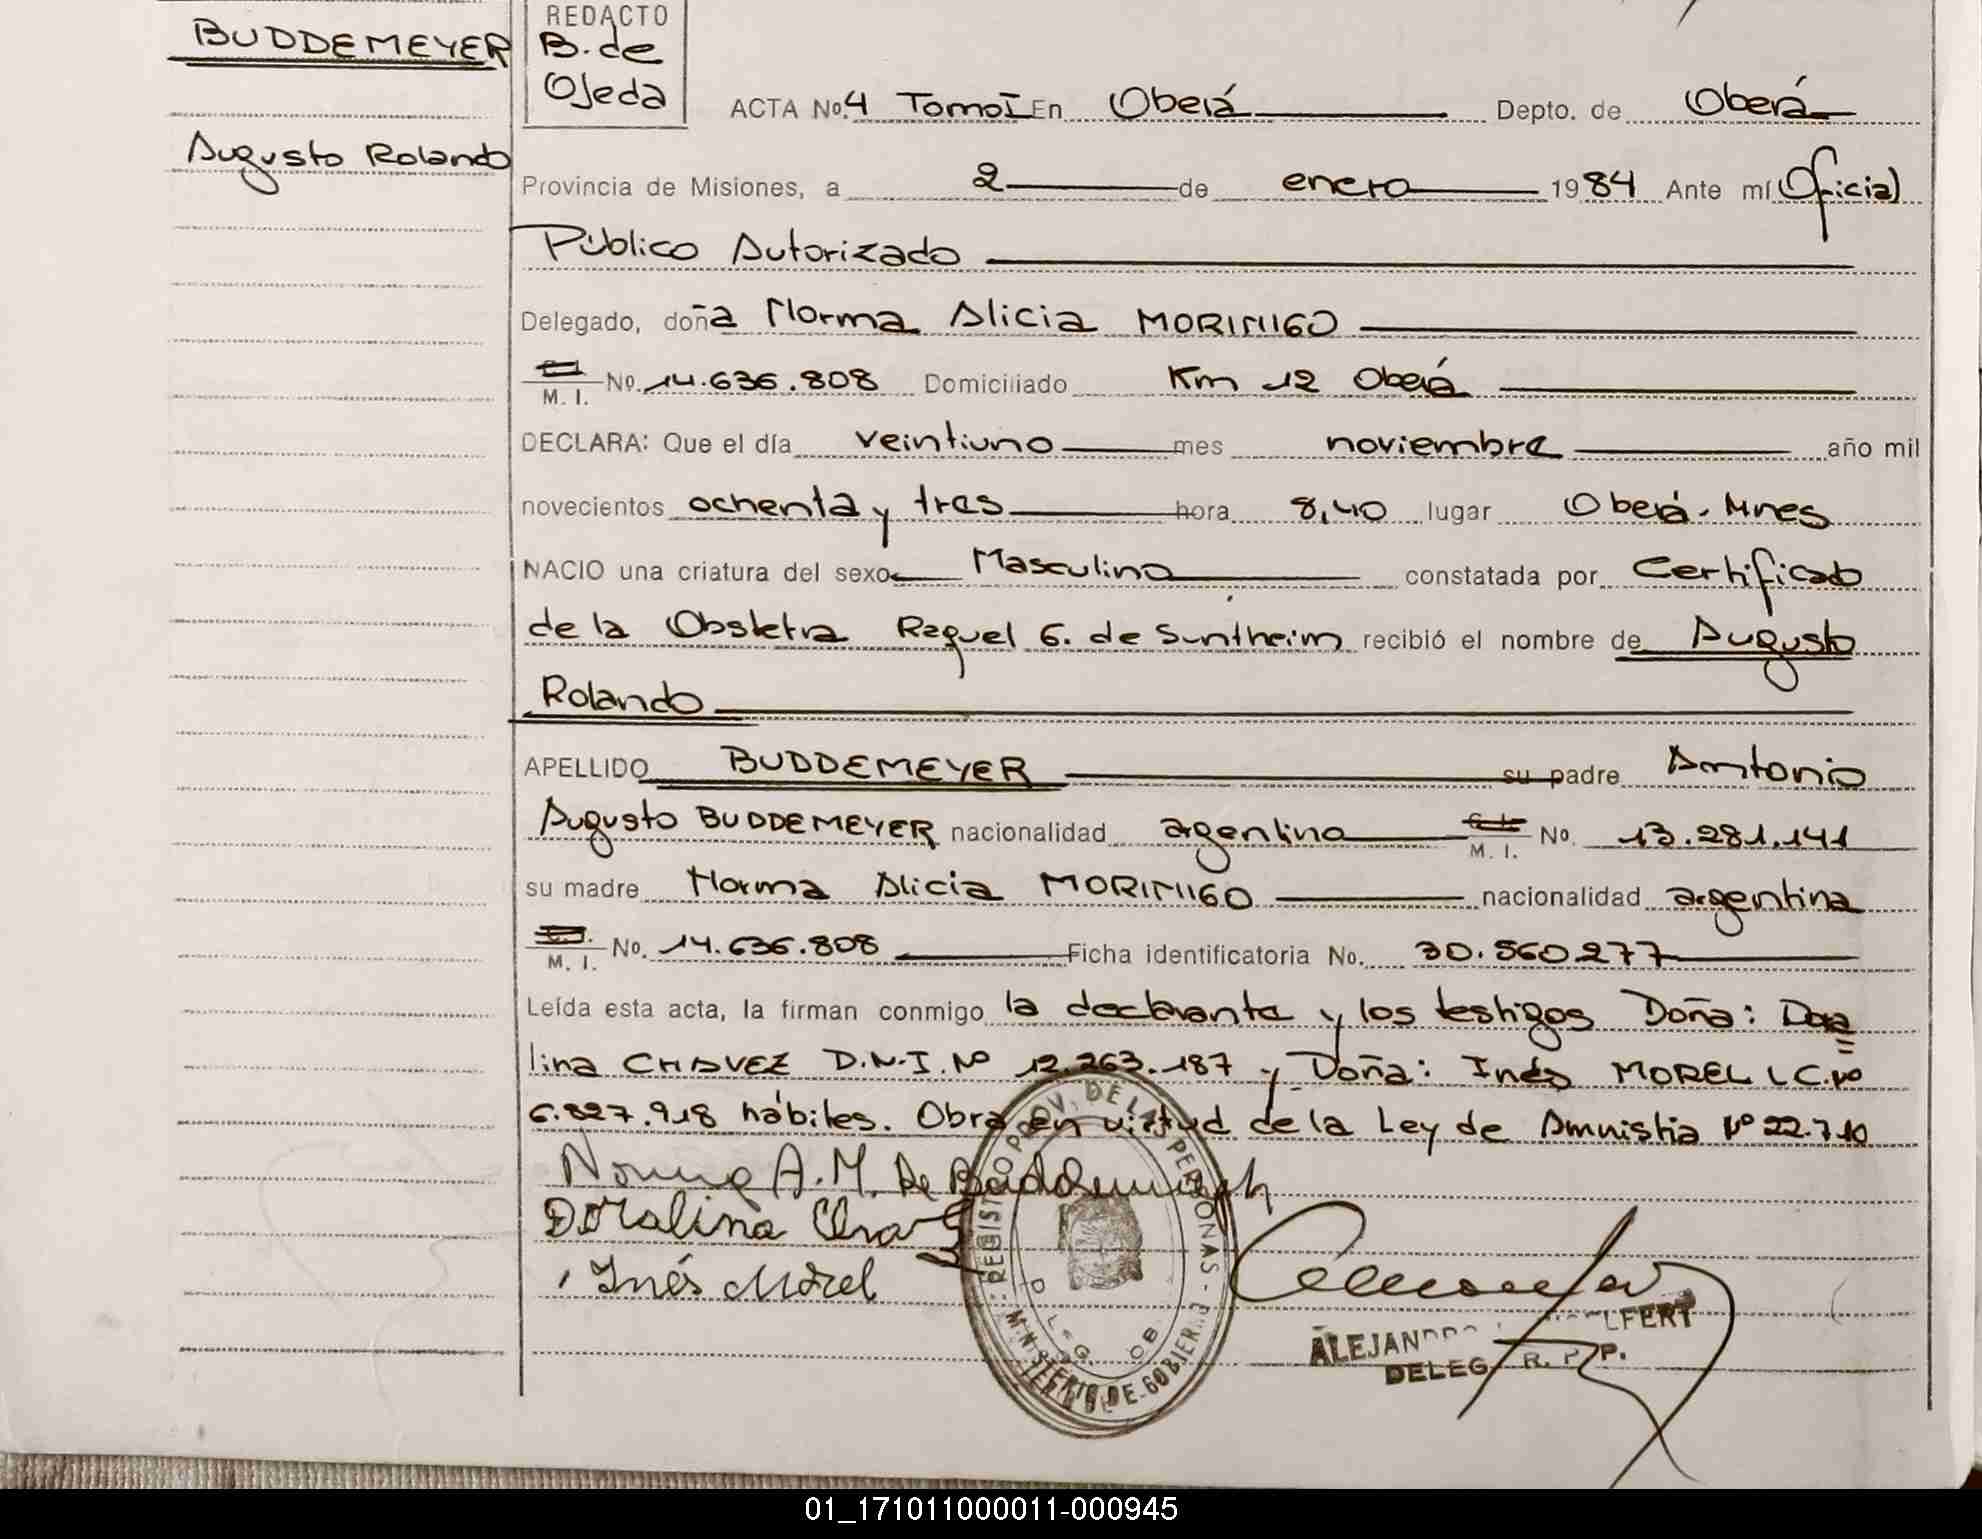 BUDDEMEYER
Augusto Rolando
REDACTO
B. de
Ojeda
ACTA No. 4 Tomo I En Oberá Depto. de Oberá
Provincia de Misiones, a 2 de enero 1984 Ante mí Oficial
Público Autorizado
Delegado, doña Norma Alicia MORINIGO
M. I. No. 14.636.808 Domiciliado Km 12 Oberá
DECLARA: Que el día veintiuno mes noviembre año mil
novecientos ochenta y tres hora 8,40 lugar Oberá. Mnes
NACIO una criatura del sexo Masculino constatada por Certificado
de la Obstetra Raquel G. de Suntheim recibió el nombre de Augusto
Rolando
APELLIDO BUDDEMEYER su padre Antonio
Augusto BUDDEMEYER nacionalidad argentino M. I. No. 13.281.141
su madre Norma Alicia MORINIGO nacionalidad argentina
M. I. No. 14.636.808 Ficha identificatoria No. 30.560.277
Leída esta acta, la firman conmigo la declarante y los testigos Doña: Dora
lina CHAVEZ D.N.I. Nº 12.263.187 y Doña: Inés MOREL L C. Nº
6.827.918 hábiles. Obra en virtud de la Ley de Amnistia Nº 22.710
Norma A. M. de
Doralina Chavez
Inés Morel
REGISTRO PROV. DE LAS PERSONAS
MINISTERIO DE GOBIERNO
ALEJANDRO LFERT
DELEG R. P. P.
01_171011000011-000945